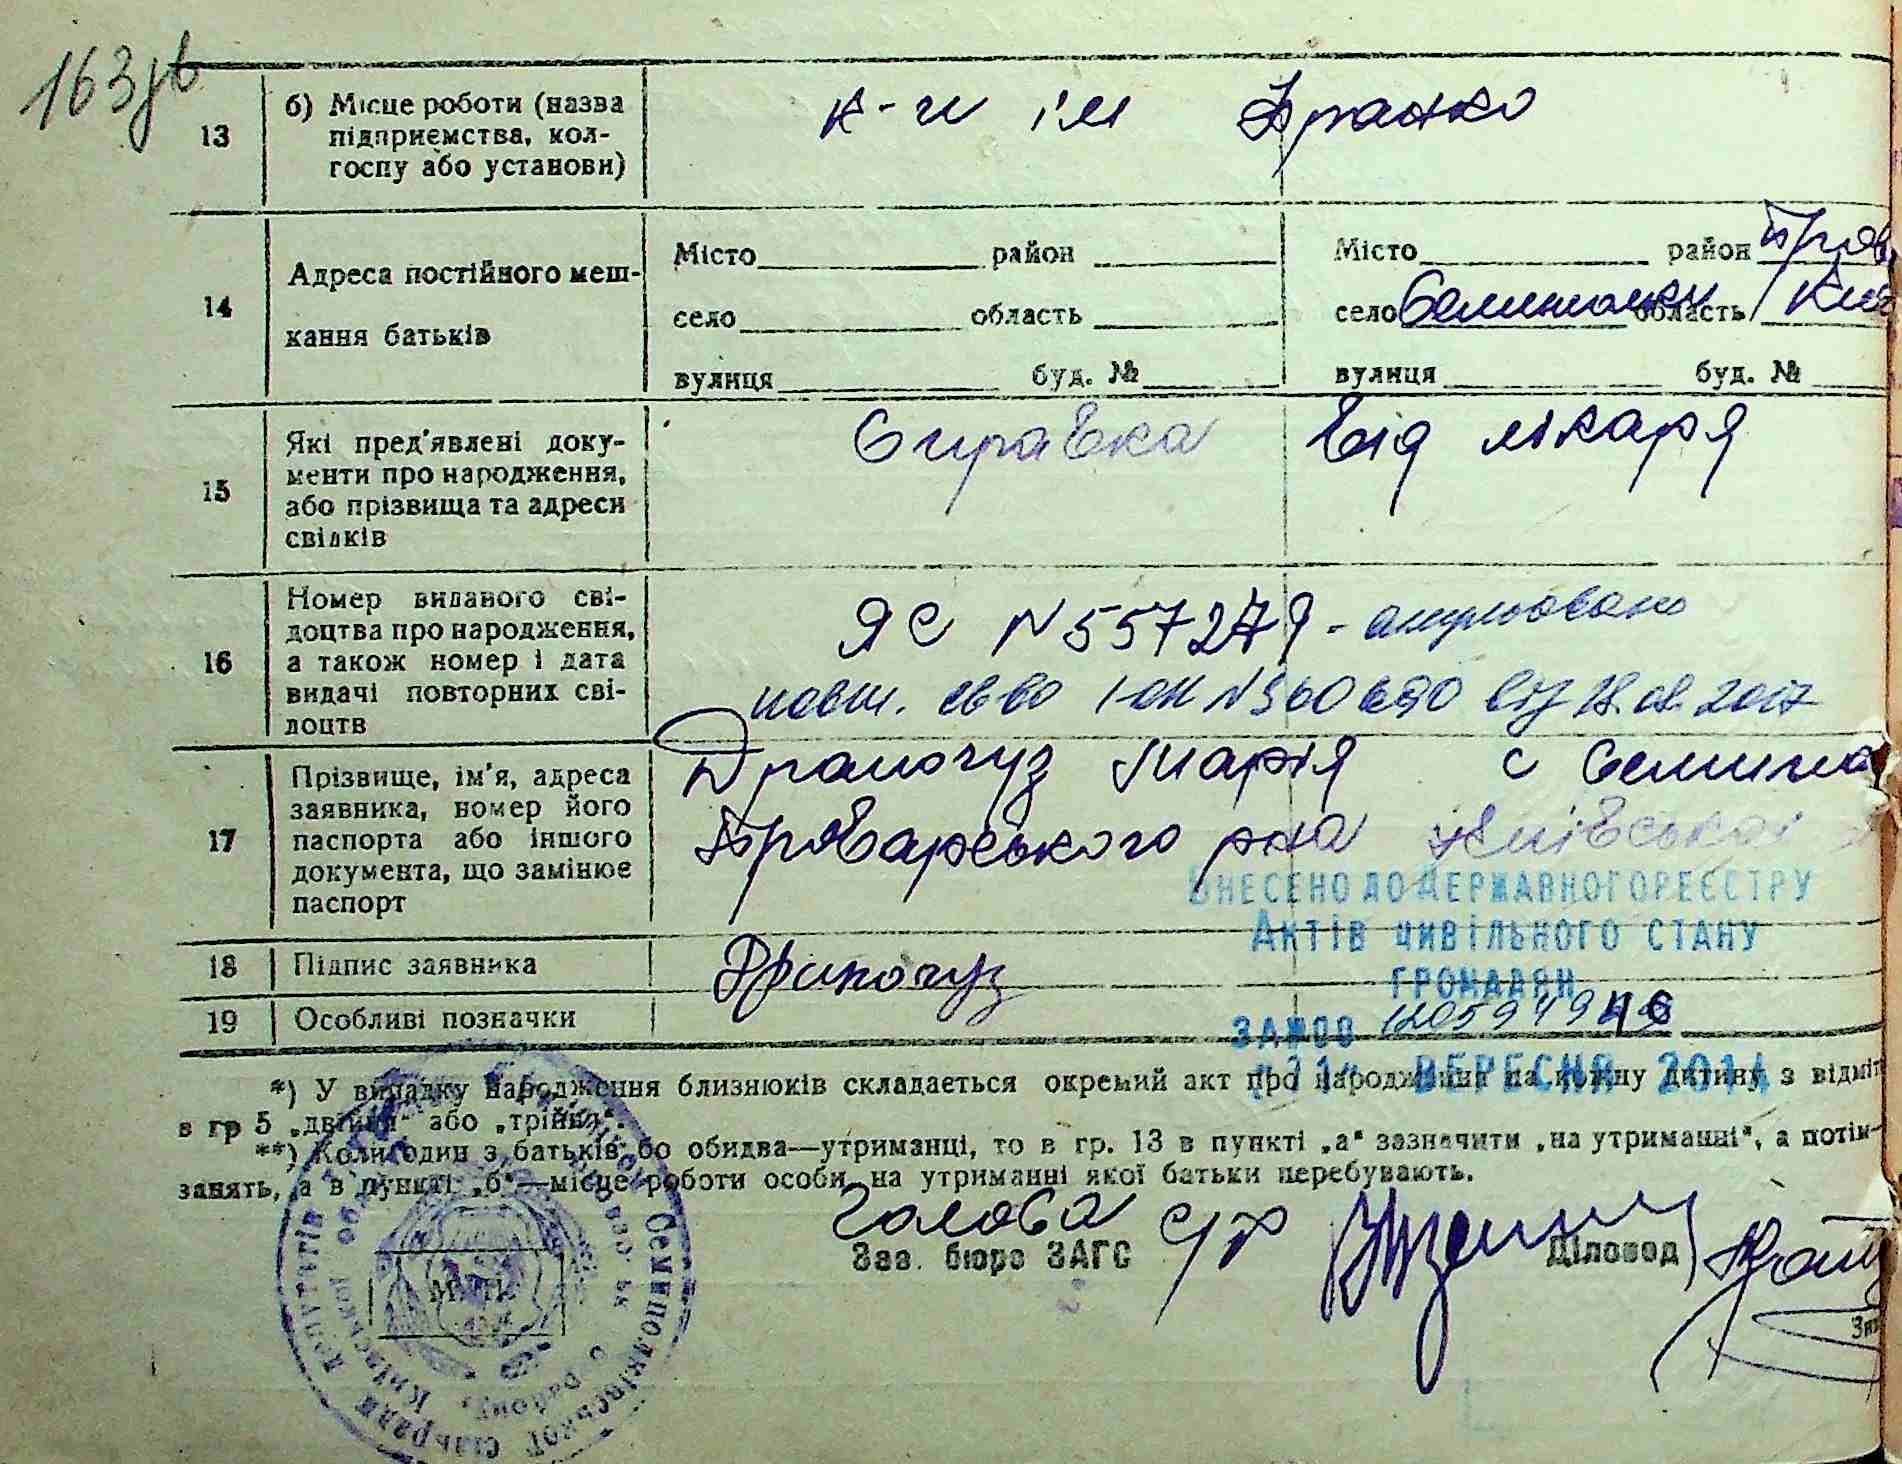 163зв
13 б) Місце роботи (назва підприємства, колгоспу або установи) к-п ім Франко
14 Адреса постійного мешкання батьків
Місто район Місто район Бров
село область село Семиполки область Киів
вулиця буд. № вулиця буд. №
15 Які пред'явлені документи про народження, або прізвища та адреси свідків Справка від лікаря
16 Номер виданого свідоцтва про народження, а також номер і дата видачі повторних свідоцтв ЯС N 557279 - анульовано
повт. св-во N 360690 від 18.08.2017
17 Прізвище, ім'я, адреса заявника, номер його паспорта або іншого документа, що замінює паспорт Марія с Семипол
Броварського р-на Київської
Внесено до Державного реєстру
Актів цивільного стану
громадян
18 Підпис заявника
19 Особливі позначки
за №00
"11" вересня 2014
*) У випадку народження близнюків складається окремий акт про народження на кожну дитину з відміт
в гр 5 „двійня“ або „трійня“.
**) Коли один з батьків бо обидва—утриманці, то в гр. 13 в пункті „а“ зазначити „на утриманні“, а потім—
занять, а в пункті „б“—місце роботи особи, на утриманні якої батьки перебувають.
Голова с/р
Зав. бюро ЗАГС Діловод